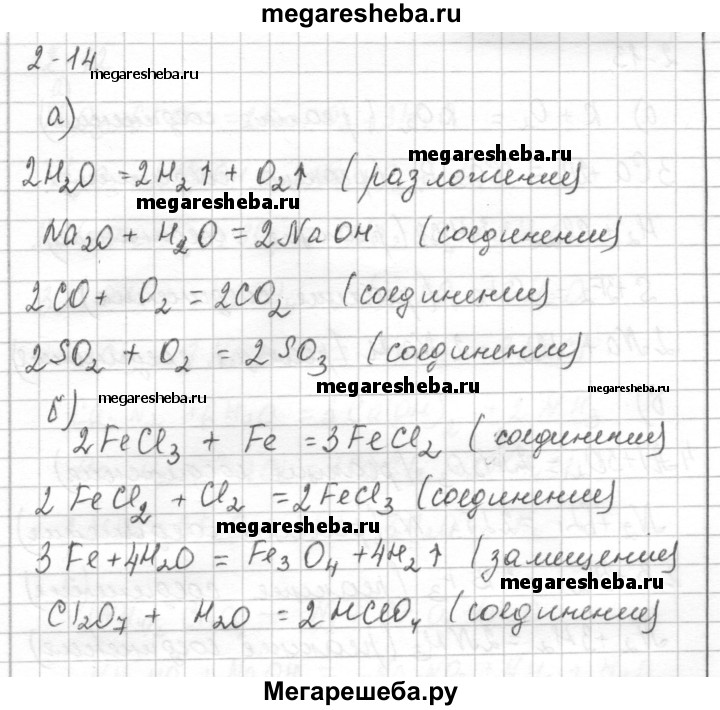 megaresheba.ru
2-14
megaresheba.ru
а)
megaresheba.ru
2H₂O = 2H₂↑ + O₂↑ (разложение)
megaresheba.ru
Na₂O + H₂O = 2NaOH (соединение)
2CO + O₂ = 2CO₂ (соединение)
2SO₂ + O₂ = 2SO₃ (соединение)
megaresheba.ru
megaresheba.ru
б) megaresheba.ru
2FeCl₃ + Fe = 3FeCl₂ (соединение)
2FeCl₂ + Cl₂ = 2FeCl₃ (соединение)
megaresheba.ru
3Fe + 4H₂O = Fe₃O₄ + 4H₂↑ (замещение)
megaresheba.ru
Cl₂O₇ + H₂O = 2HClO₄ (соединение)
Мегарешеба.ру